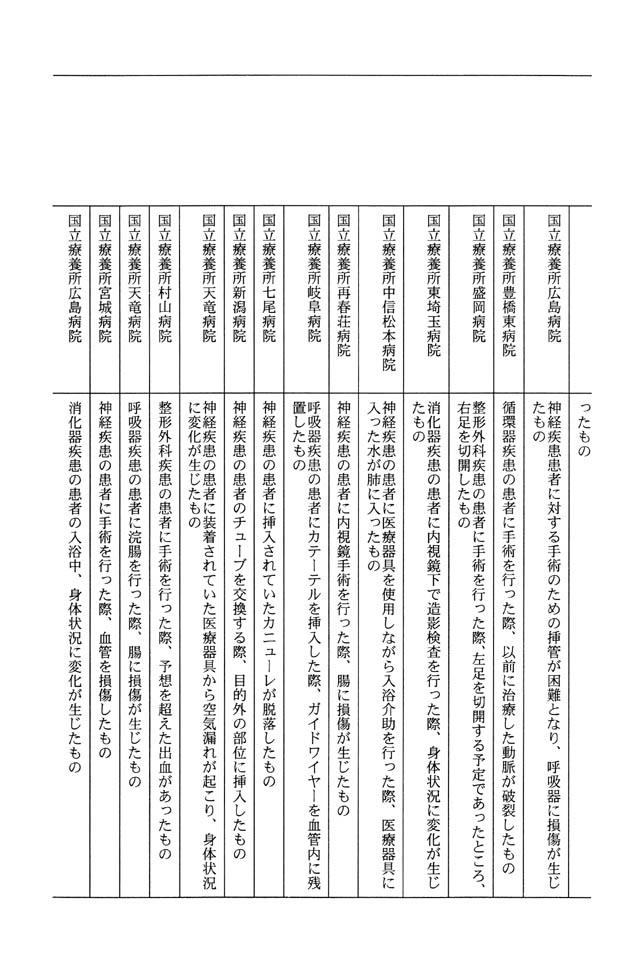 ったもの
国立療養所広島病院
神経疾患患者に対する手術のための挿管が困難となり、呼吸器に損傷が生じ
たもの
国立療養所豊橋東病院
循環器疾患の患者に手術を行った際、以前に治療した動脈が破裂したもの
国立療養所盛岡病院
整形外科疾患の患者に手術を行った際、左足を切開する予定であったところ、
右足を切開したもの
国立療養所東埼玉病院
消化器疾患の患者に内視鏡下で造影検査を行った際、身体状況に変化が生じ
たもの
国立療養所中信松本病院
神経疾患の患者に医療器具を使用しながら入浴介助を行った際、医療器具に
入った水が肺に入ったもの
国立療養所再春荘病院
神経疾患の患者に内視鏡手術を行った際、腸に損傷が生じたもの
国立療養所岐阜病院
呼吸器疾患の患者にカテーテルを挿入した際、ガイドワイヤーを血管内に残
置したもの
国立療養所七尾病院
神経疾患の患者に挿入されていたカニューレが脱落したもの
国立療養所新潟病院
神経疾患の患者のチューブを交換する際、目的外の部位に挿入したもの
国立療養所天竜病院
神経疾患の患者に装着されていた医療器具から空気漏れが起こり、身体状況
に変化が生じたもの
国立療養所村山病院
整形外科疾患の患者に手術を行った際、予想を超えた出血があったもの
国立療養所天竜病院
呼吸器疾患の患者に浣腸を行った際、腸に損傷が生じたもの
国立療養所宮城病院
神経疾患の患者に手術を行った際、血管を損傷したもの
国立療養所広島病院
消化器疾患の患者の入浴中、身体状況に変化が生じたもの